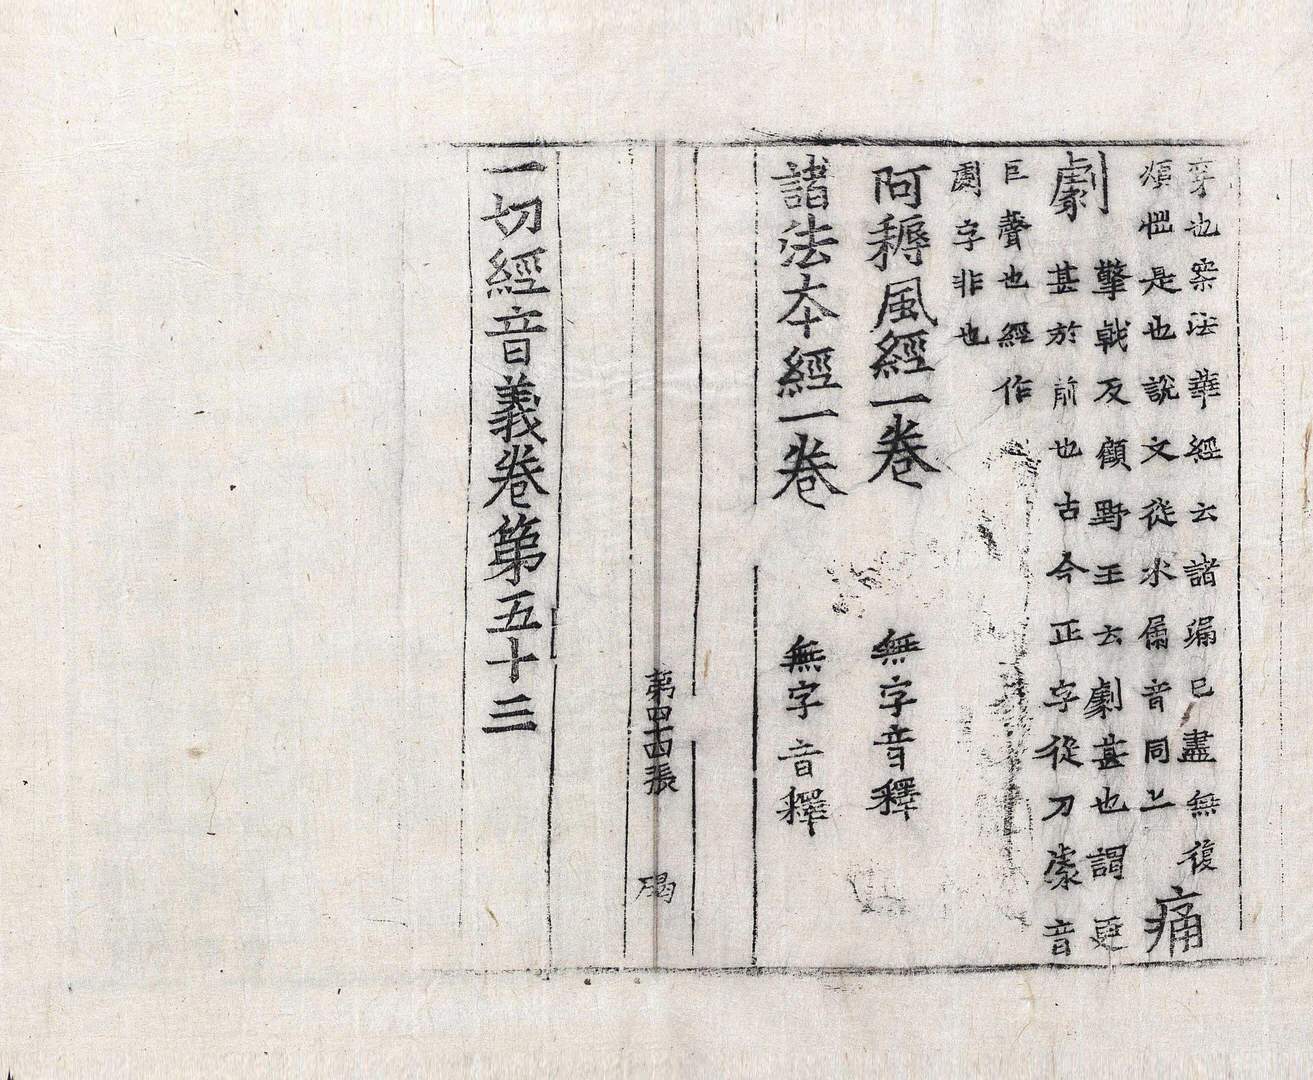 穿也案法華經云諸漏已盡無復
煩惱是也說文從水屚音同上 痛
劇 擎戟反顧野王云劇甚也謂更
甚於前也古今正字從刀豦音
巨聲也經作
劇字非也
阿耨風經一卷 無字音釋
諸法本經一卷 無字音釋
第四十四張 碣
一切經音義卷第五十三